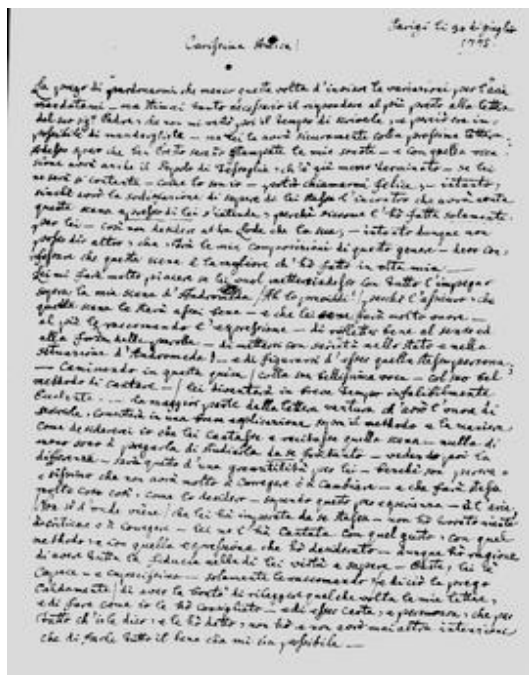 Parigi li 30 di giuglio
1778
Carissima Amica!
La prego di pardonarmi che manco questa volta d'inviare le variazioni per l'aria
mandatami – ma stimai tanto necessario il rispondere al più presto alla lettera
del suo sig:r Padre, che non mi restò poi il Tempo di scriverle, e perciò era im=
possibile di mandargliele – ma lei le avrà sicuramente colla prossima lettera;
adesso spero che ben presto saranno stampate le mie sonate – e con quella occa=
sione avrà anche il Popolo di Tessaglia, ch'è già mezzo Terminato – se lei
ne sarà sì contenta – come lo son io – potrò chiamarmi felice; – intanto,
sinchè avrò la sodisfazione di sapere di lei stessa l'incontro che avrà avuto
questa scena apresso di lei s'intende, perchè siccome l'hò fatta solamente
per lei – così non desidero altra Lode che la sua; – intanto dunque non
posso dir altro, che, trà le mie composizioni di questo genere – devo con=
fessare che questa scena è la megliore ch'hò fatto in vita mia –
Lei mi farà molto piacere se lei vuol mettersi adesso con Tutto l'impegno
sopra la mia scena d'Andromeda (Ah lo previddi!) perchè l'assicuro, che
questa scena le starà assai bene – e che lei sene farà molto onore –
al più le raccomando l'espressione – di rifletter bene al senso ed
alla forza delle parolle – di mettersi con serietà nello stato e nella
situazione d'Andromeda! – e di figurarsi d'esser quella stessa persona;
– Caminando in questa guisa (colla sua bellissima voce – col suo bel
methodo di cantare –) lei diventerà in breve Tempo infallibilmente
Eccellente. – la maggior parte della lettera ventura ch'avrò l'onore di
scriverle, consisterà in una breve esplicazione sopra il methodo e la maniera
come desiderei io che lei cantasse e recitasse quella scena – nulla di
meno sono à pregarla di studiarla da se frattanto – vedendo poi la
differenza – sarà questo d'una gran utilità per lei – benchè son
che non avrà molto à corregere ò à cambiare – e che farà stessa
molte cose così, come lo desidero – sapendo questo per esperienza – à l'aria
(Non sò d'onde viene) che lei hà imparata da se stessa – non hò trovato niente
à criticare ò à coregere – lei me l'hà Cantata con quel gusto, con quel
methodo, e con quella espressione che hò desiderato – dunque hò ragione
di avere tutta la fiducia nella di lei virtù e sapere – Basta, lei è
Capace – e capacissima – solamente le raccomando (e di ciò la prego
Caldamente) di aver la bontà di rileggere qual che volta le mie lettere,
e di fare come io le hò consigliato – e di esser certa, e persuasa, che per
tutto ch'io le dico, e le hò detto, non hò e non avrò mai altra intenzione
che di farle tutto il bene che mi sia possibile –